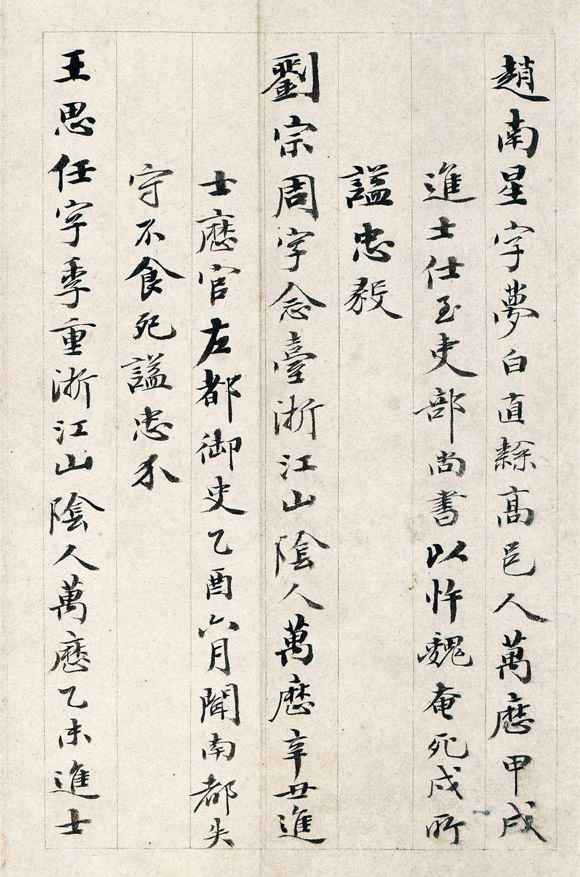 趙南星字夢白直隸高邑人萬厯甲戌
進士仕至吏部尚書以忤魏奄死戍所
謚忠毅
劉宗周字念臺浙江山陰人萬厯辛丑進
士厯官左都御史乙酉六月聞南都失
守不食死謚忠介
王思任字季重浙江山陰人萬厯乙未進士